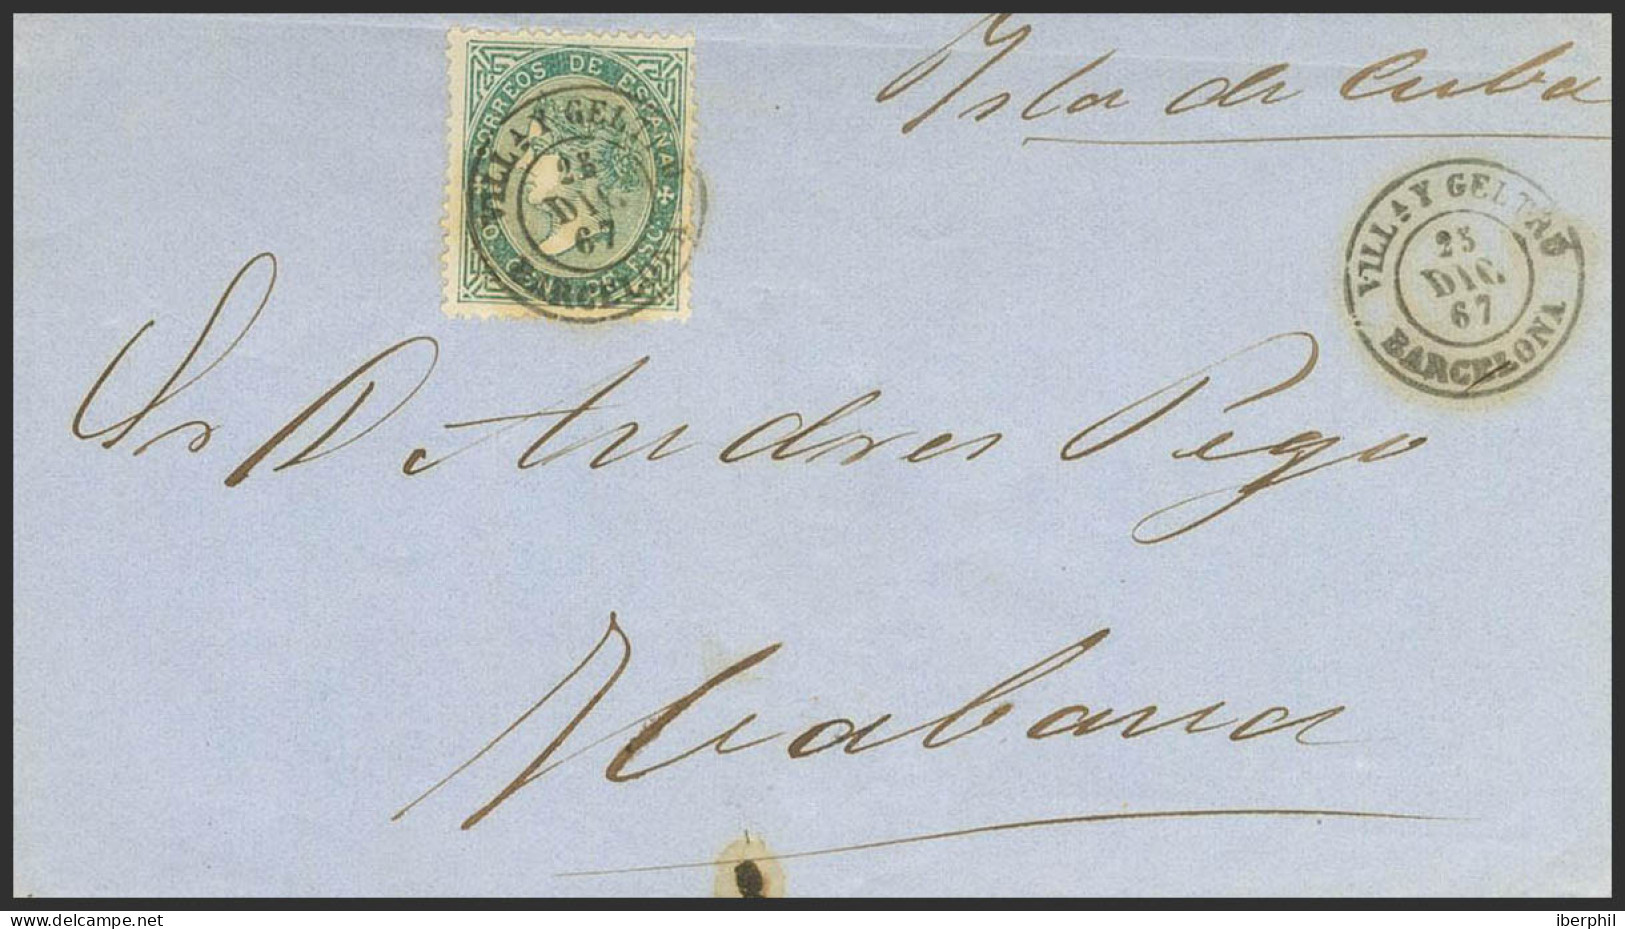 Ysla de Cuba
CORREOS DE ESPAÑA
VILLA Y GELTRU
25
DIC.
67
BARCELONA
VILLA Y GELTRU
25
DIC.
67
BARCELONA
Sr D. Andres Pego
Habana
www.delcampe.net
iberphil